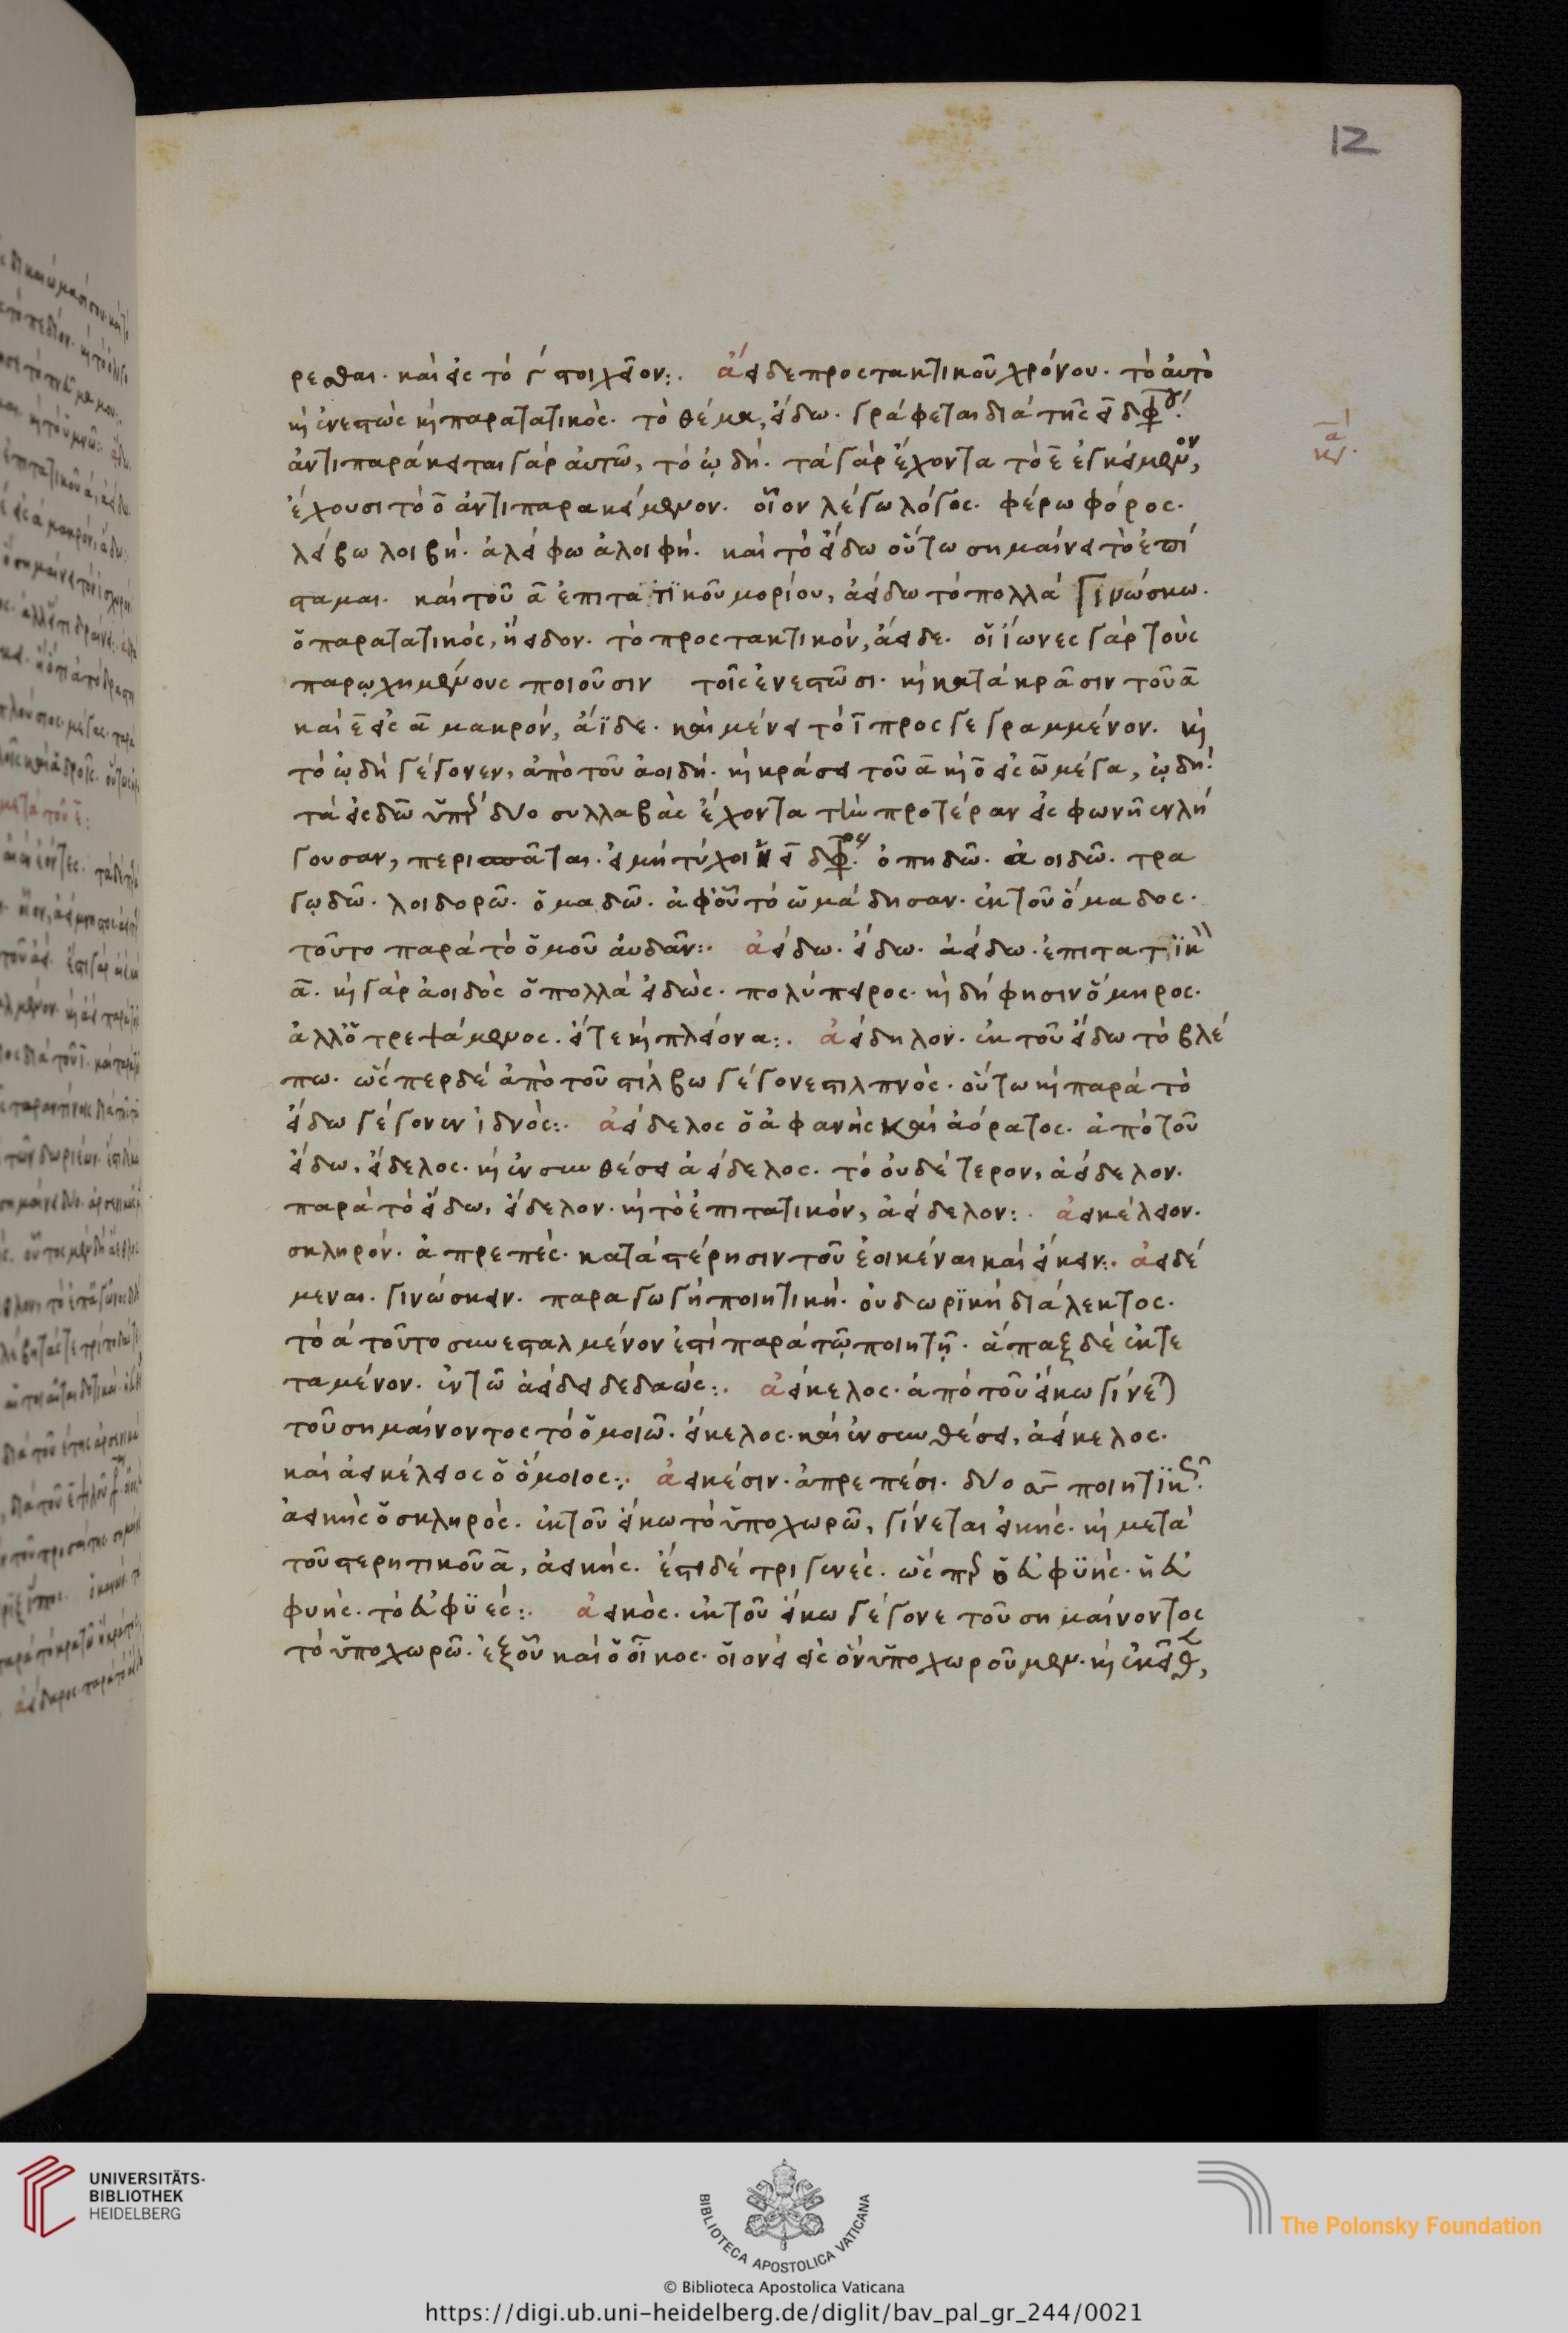 12
ρεσθαι. καὶ εἰς τὸ γ στοιχεῖον:. ἄειδε προστακτικοῦ χρόνου. τὸ αὐτὸ
κὶ ἐνεστὼς κὶ παρατατικός. τὸ θέμα, εἴδω. γράφεται διὰ τῆς ει διφ
ἀντιπαράκειται γὰρ αὐτῶ, τὸ ὠδή. τὰ γὰρ ἔχοντα τὸ ε ἐγκείμενον,
ἔχουσι τὸ ο ἀντιπαρακείμενον. οἷον λέγω λόγος. φέρω φόρος.
λείβω λοιβή. ἀλείφω ἀλοιφή. καὶ τὸ εἴδω οὕτω σημαίνει τὸ ἐπί
σταμαι. καὶ τοῦ α ἐπιτατικοῦ μορίου, ἀείδω τὸ πολλὰ γινώσκω.
ὁ παρατατικός, ἤειδον. τὸ προστακτικόν, ἄειδε. οἱ ἴωνες γὰρ τοὺς
παρωχημένους ποιοῦσιν τοῖς ἐνεστῶσι. κὶ κατὰ κρᾶσιν τοῦ α
καὶ ε εἰς α μακρόν, ἄϊδε. καὶ μένει τὸ ι προσγεγραμμένον. κὶ
τὸ ὠδὴ γέγονεν, ἀπὸ τοῦ ἀοιδή. κὶ κράσει τοῦ α κὶ ο εἰς ω μέγα, ὠδή.
τὰ εἰς δω ὑπὲρ δύο συλλαβὰς ἔχοντα τὴν προτέραν εἰς φωνῆεν λή
γουσαν, περισπᾶται. εἰ μὴ τύχοι ει διφ. ὀπηδῶ. ἀοιδῶ. τρα
γωδῶ. λοιδορῶ. ὁμαδῶ. ἀφ' οὗ τὸ ὡμάδησαν. ἐκ τοῦ ὅμαδος.
τοῦτο παρὰ τὸ ὁμοῦ αὐδᾶν:. ἀείδω. εἴδω. ἀείδω. ἐπιτατικ
α. κὶ γὰρ ἀοιδὸς ὁ πολλὰ εἰδώς. πολύπειρος. κὶ δή φησιν ὅμηρος.
ἀλλ' ὃ τρεψάμενος. εἶτε κὶ πλείονα:. ἀείδηλον. ἐκ τοῦ εἴδω τὸ βλέ
πω. ὥσπερ δὲ ἀπὸ τοῦ στίλβω γέγονε στιλπνός. οὕτω κὶ παρὰ τὸ
εἴδω γέγονεν ἰδνός:. ἀείδελος ὁ ἀφανὴς καὶ ἀόρατος. ἀπὸ τοῦ
εἴδω, εἴδελος. κὶ ἐν συνθέσει ἀείδελος. τὸ οὐδέτερον, ἀείδελον.
παρὰ τὸ εἴδω, εἴδελον. κὶ τὸ ἐπιτατικόν, ἀείδελον:. ἀεικέλειον.
σκληρόν. ἀπρεπές. κατὰ στέρησιν τοῦ ἐοικέναι καὶ εἴκειν:. ἀειδέ
μεναι. γινώσκειν. παραγωγὴ ποιητική. οὐ δωρϊκὴ διάλεκτος.
τὸ α τοῦτο συνεσταλμένον ἐστὶ παρὰ τῷ ποιητῇ. ἅπαξ δὲ ἐκτε
ταμένον. ἐν τῶ ἀείδει δεδαώς:. ἀείκελος. ἀπὸ τοῦ εἴκω γίνεται
τοῦ σημαίνοντος τὸ ὁμοιῶ. εἴκελος. καὶ ἐν συνθέσει, ἀείκελος.
καὶ ἀεικέλειος ὁ ὅμοιος:. ἀεικέσιν. ἀπρεπέσι. δύο α ποιητικ
ἀεικὴς ὁ σκληρός. ἐκ τοῦ εἴκω τὸ ὑποχωρῶ, γίνεται εἰκής. κὶ μετὰ
τοῦ στερητικοῦ α, ἀεικής. ἔστι δὲ τριγενές. ὥσπερ ὁ εὐφϋής. ἡ εὐ
φυής. τὸ εὐφϋές:. ἀεικός. ἐκ τοῦ εἴκω γέγονε τοῦ σημαίνοντος
τὸ ὑποχωρῶ. ἐξ οὗ καὶ ὁ οἶκος. οἱονεὶ εἰς ὃν ὑποχωροῦμεν. κὶ ἐκεῖθ,
UNIVERSITÄTS-
BIBLIOTHEK
HEIDELBERG
BIBLIOTECA APOSTOLICA VATICANA
The Polonsky Foundation
© Biblioteca Apostolica Vaticana
https://digi.ub.uni-heidelberg.de/diglit/bav_pal_gr_244/0021